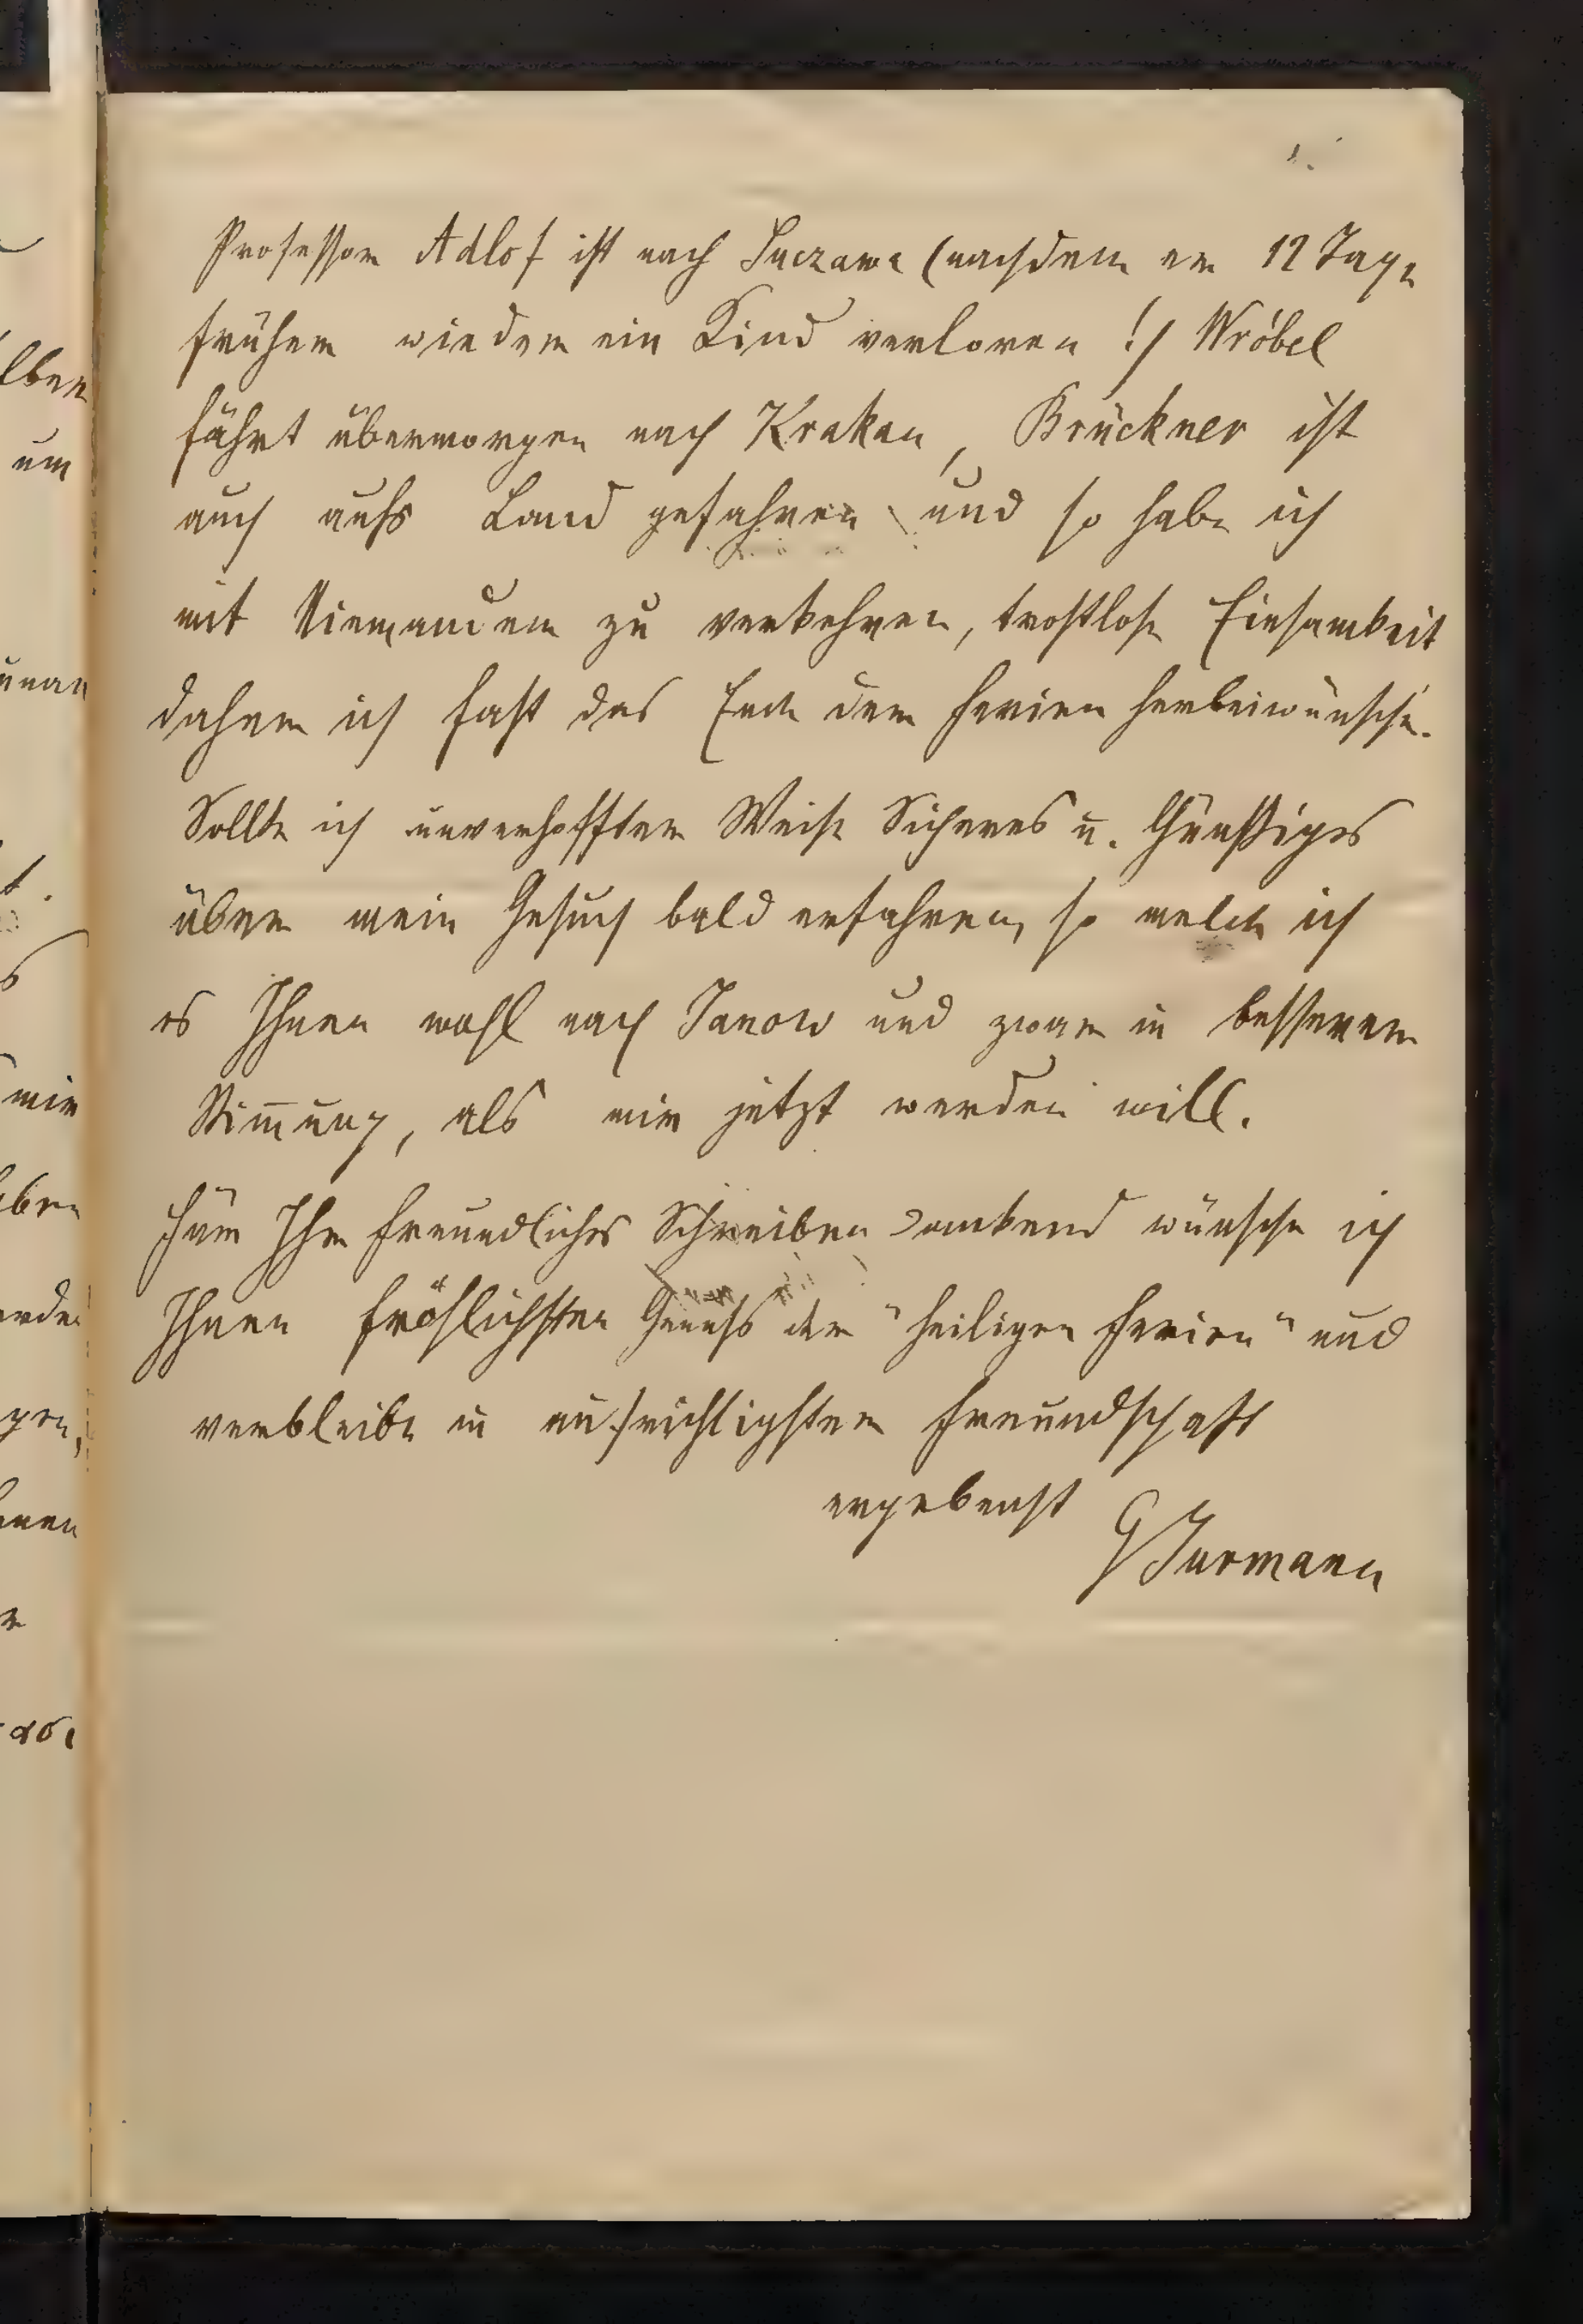 Professor Adlof ist nach Suczawa (nachdem er 12 Tage
früher wieder ein Kind verloren!) Wróbel
fährt übermorgen nach Krakau, Brückner ist
auch aufs Land gefahren und so habe ich
mit Niemandem zu verkehren, trostlose Einsamkeit
daher ich fast das Ende der Ferien herbeiwünsche.
Sollte ich unverhoffter Weise Sicheres u. Günstiges
über mein Gesuch bald erfahren, so melde ich
es Ihnen wohl nach Janow und zwar in besserer
Stimmung, als mir jetzt werden will.
Für Ihr freundliches Schreiben dankend wünsche ich
Ihnen fröhlichsten Genuß der "heiligen Ferien" und
verbleibe in aufrichtigster Freundschaft
ergebenst